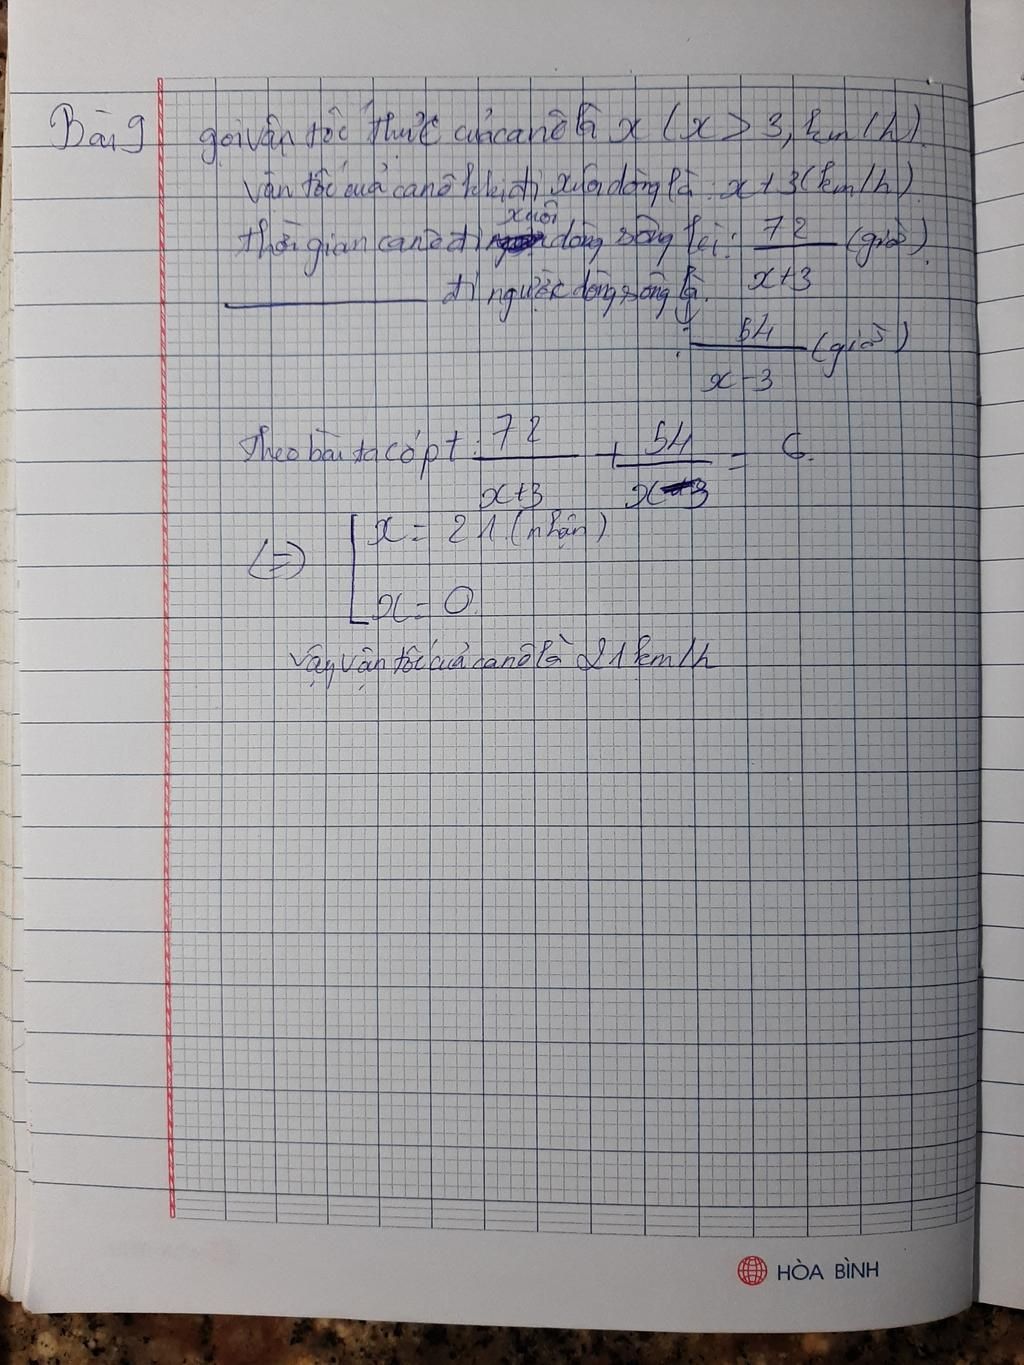 Bài 9 gọi vận tốc thực của canô là x (x > 3, km/h)
Vận tốc của canô khi đi xuôi dòng là: x+3 (km/h)
thời gian canô đi xuôi dòng sông là: 72/(x+3) (giờ)
đi ngược dòng sông là:
54/(x-3) (giờ)
Theo bài ta có pt: 72/(x+3) + 54/(x-3) = 6.
(=) [ x = 21 (nhận)
x = 0
Vậy vận tốc của canô là 21 km/h
HÒA BÌNH